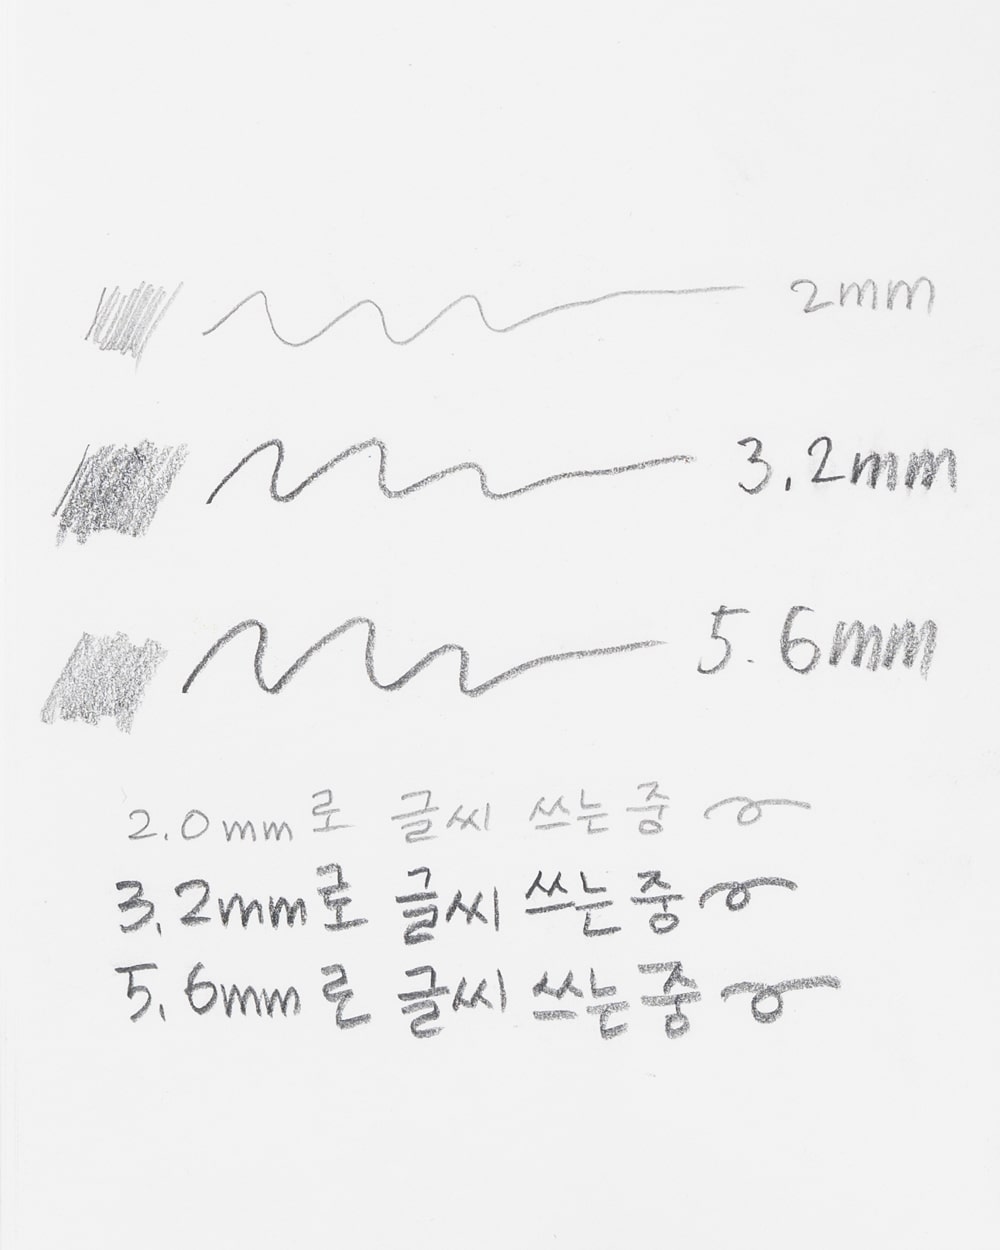 2mm
3.2mm
5.6mm
2.0mm로 글씨 쓰는중
3.2mm로 글씨 쓰는중
5.6mm로 글씨 쓰는중